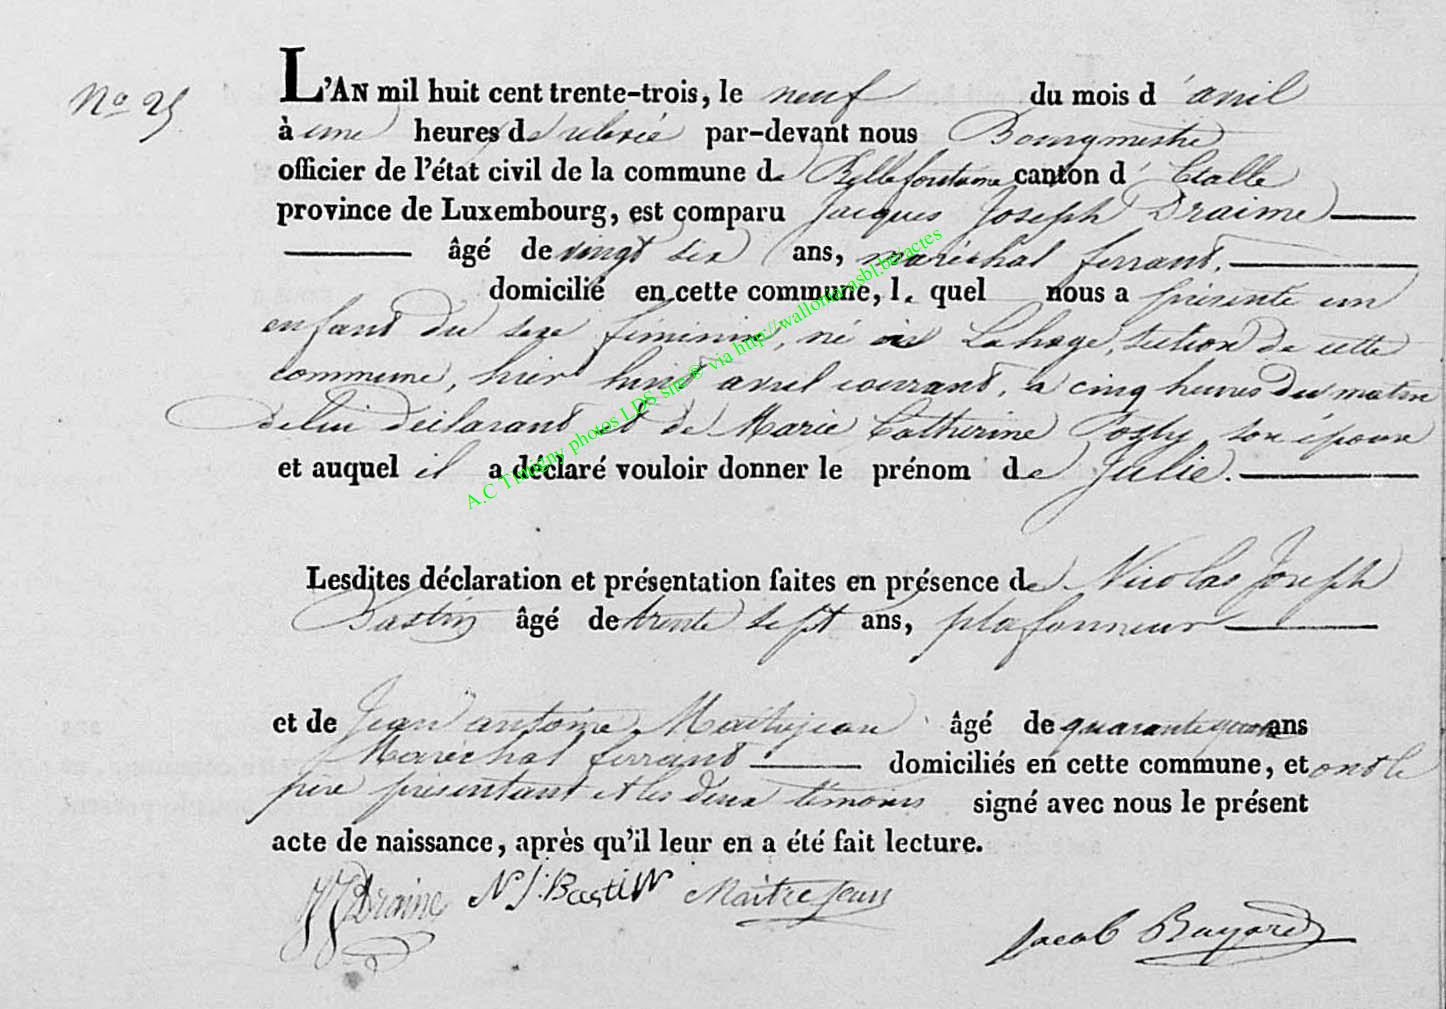 No 25
L'AN mil huit cent trente-trois, le neuf du mois d'avril
à une heures de relevée par-devant nous Bourgmestre
officier de l'état civil de la commune de Bellefontaine canton d'Etalle
province de Luxembourg, est comparu Jacques Joseph Draime
âgé de vingt six ans, maréchal ferrant.
domicilié en cette commune, le quel nous a présenté un
enfant du sexe féminin, né à Lahage, section de cette
commune, hier huit avril courrant, a cinq heures du matin
de lui déclarant et de Marie Catherine son épouse
et auquel il a déclaré vouloir donner le prénom de Julie.
Lesdites déclaration et présentation faites en présence de Nicolas Joseph
Bastin âgé de trente sept ans, plafonneur
et de Jean antoine Maitrejean âgé de quarante ans
Maréchal ferrant domiciliés en cette commune, et ont le
père présentant et les deux témoins signé avec nous le présent
acte de naissance, après qu'il leur en a été fait lecture.
JJ Draime N J. Bastin Maitrejean
Jacob Bayard
A.C Tintigny photos LDS site ® via http://wallonia.asbl.be/actes